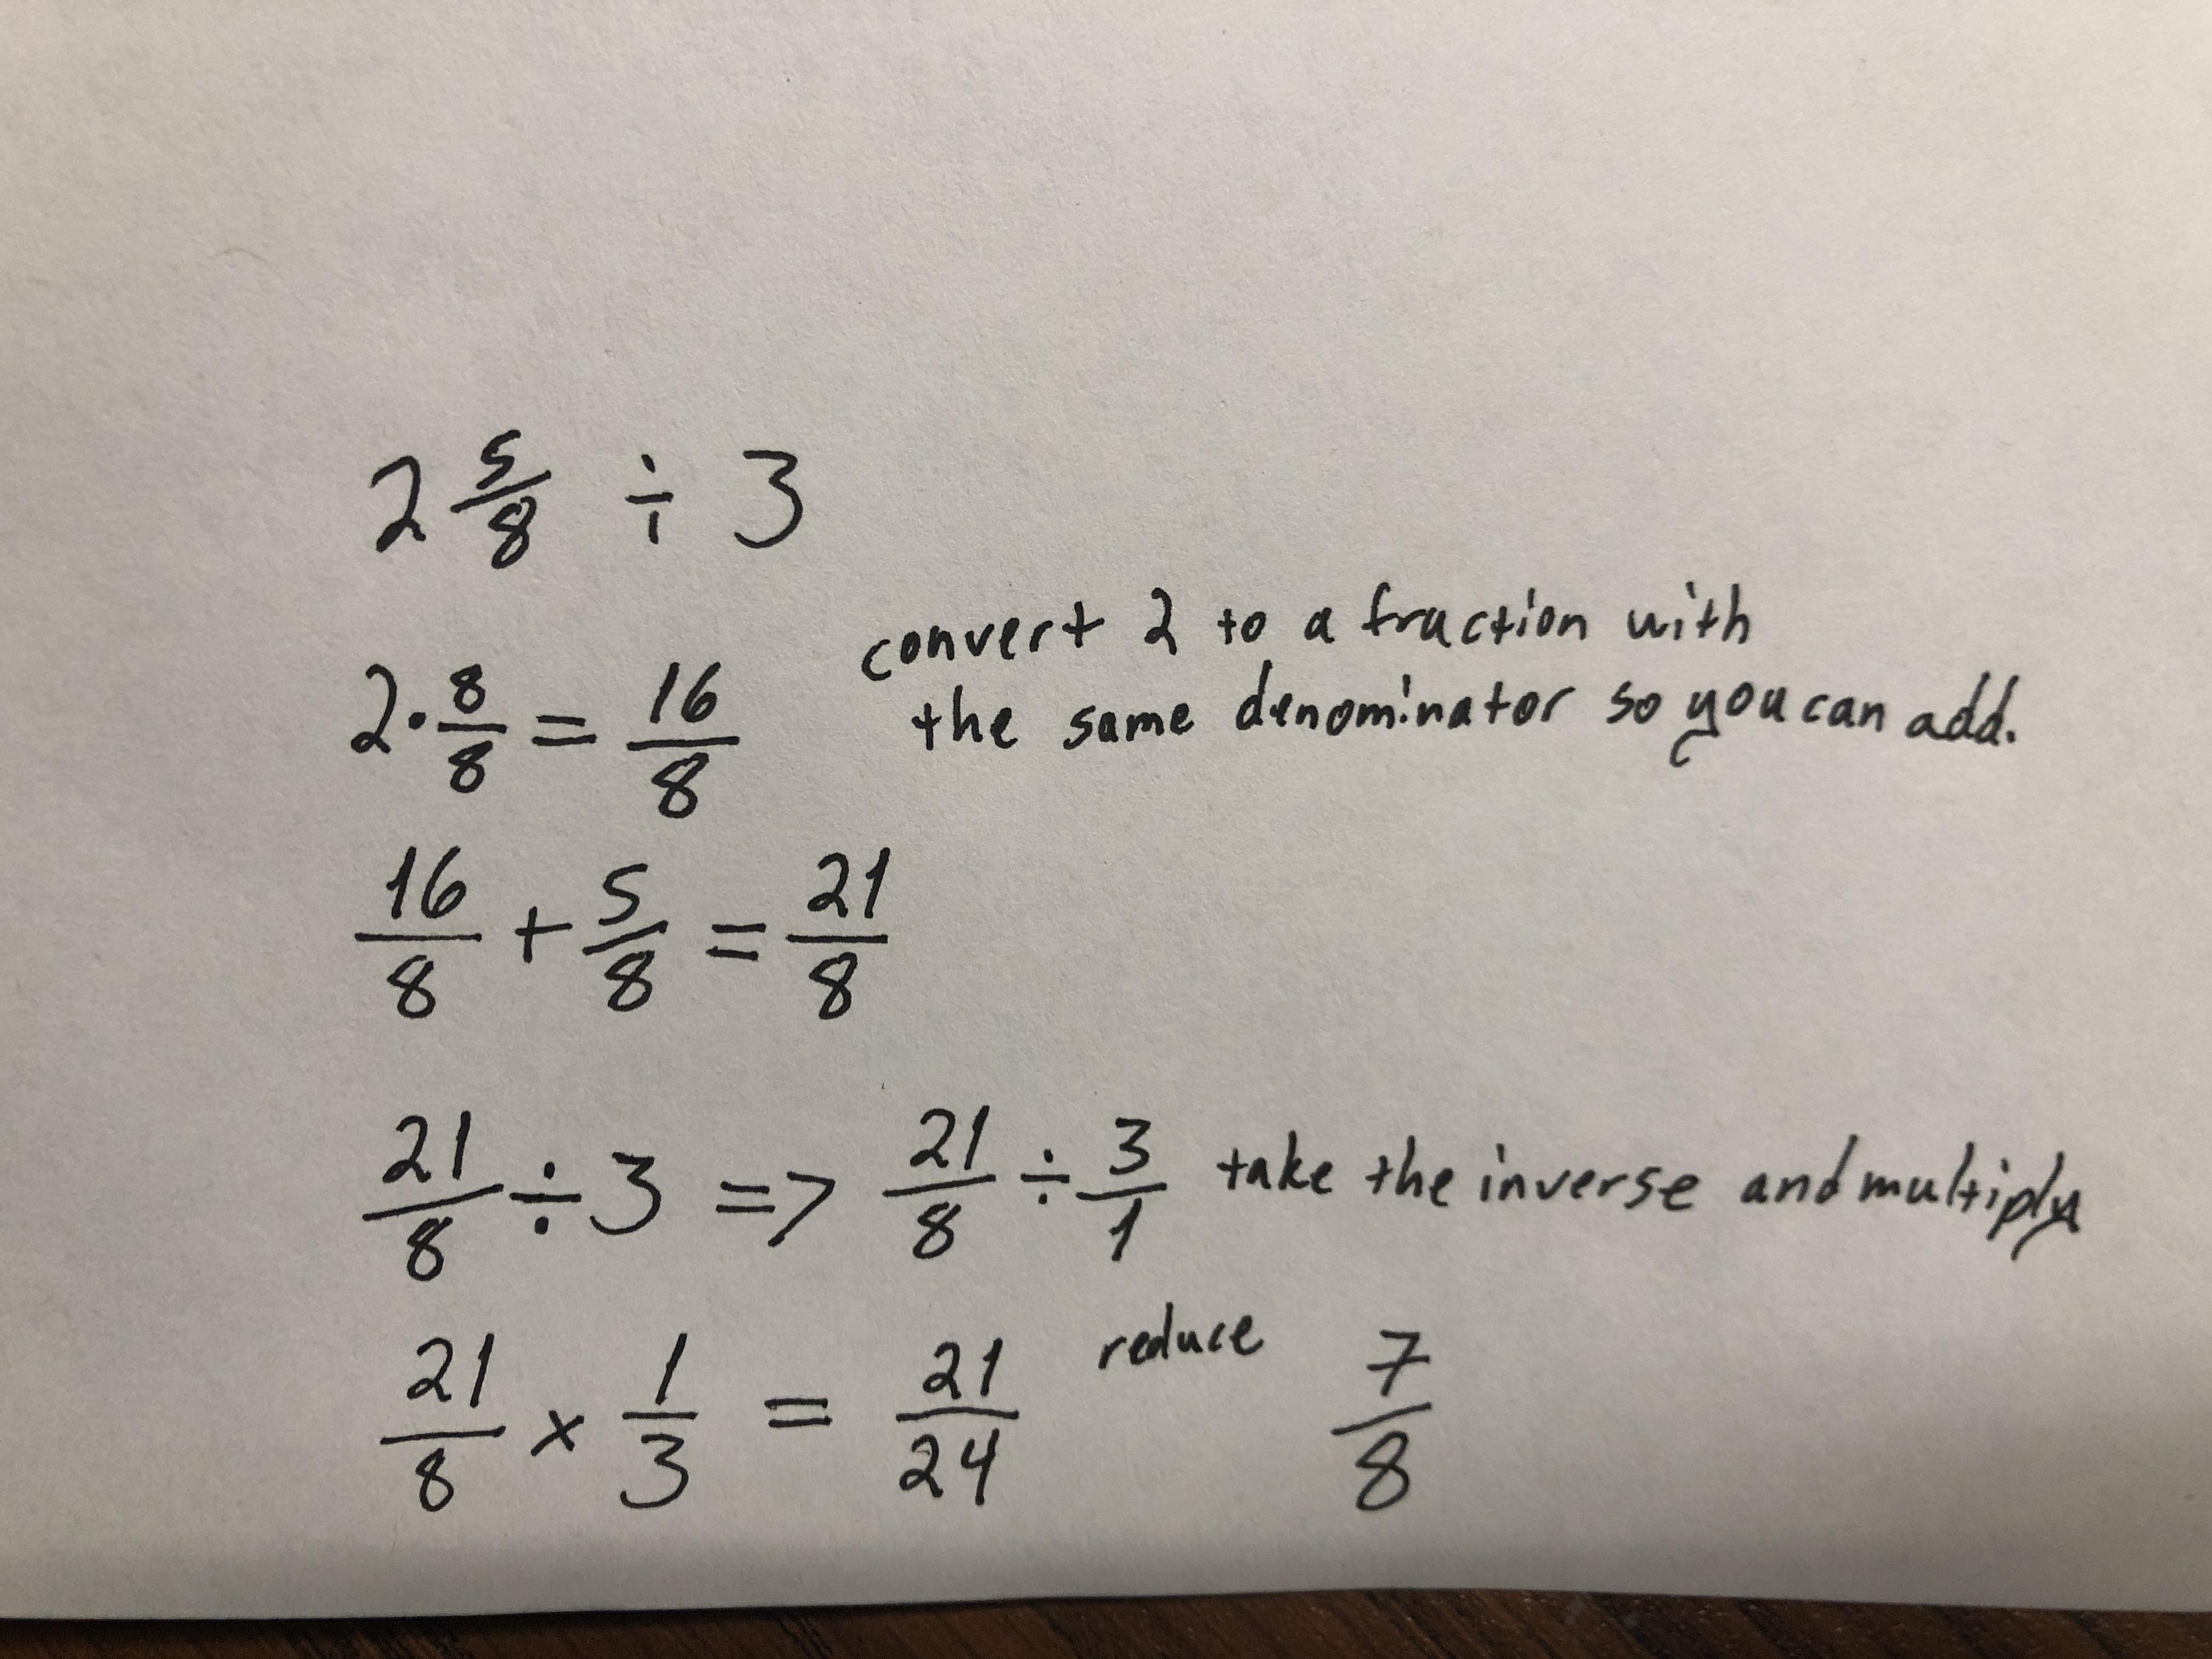 2 5/8 ÷ 3
convert 2 to a fraction with
2 · 8/8 = 16/8 the same denominator so you can add.
16/8 + 5/8 = 21/8
21/8 ÷ 3 => 21/8 ÷ 3/1 take the inverse and multiply
21/8 x 1/3 = 21/24 reduce 7/8